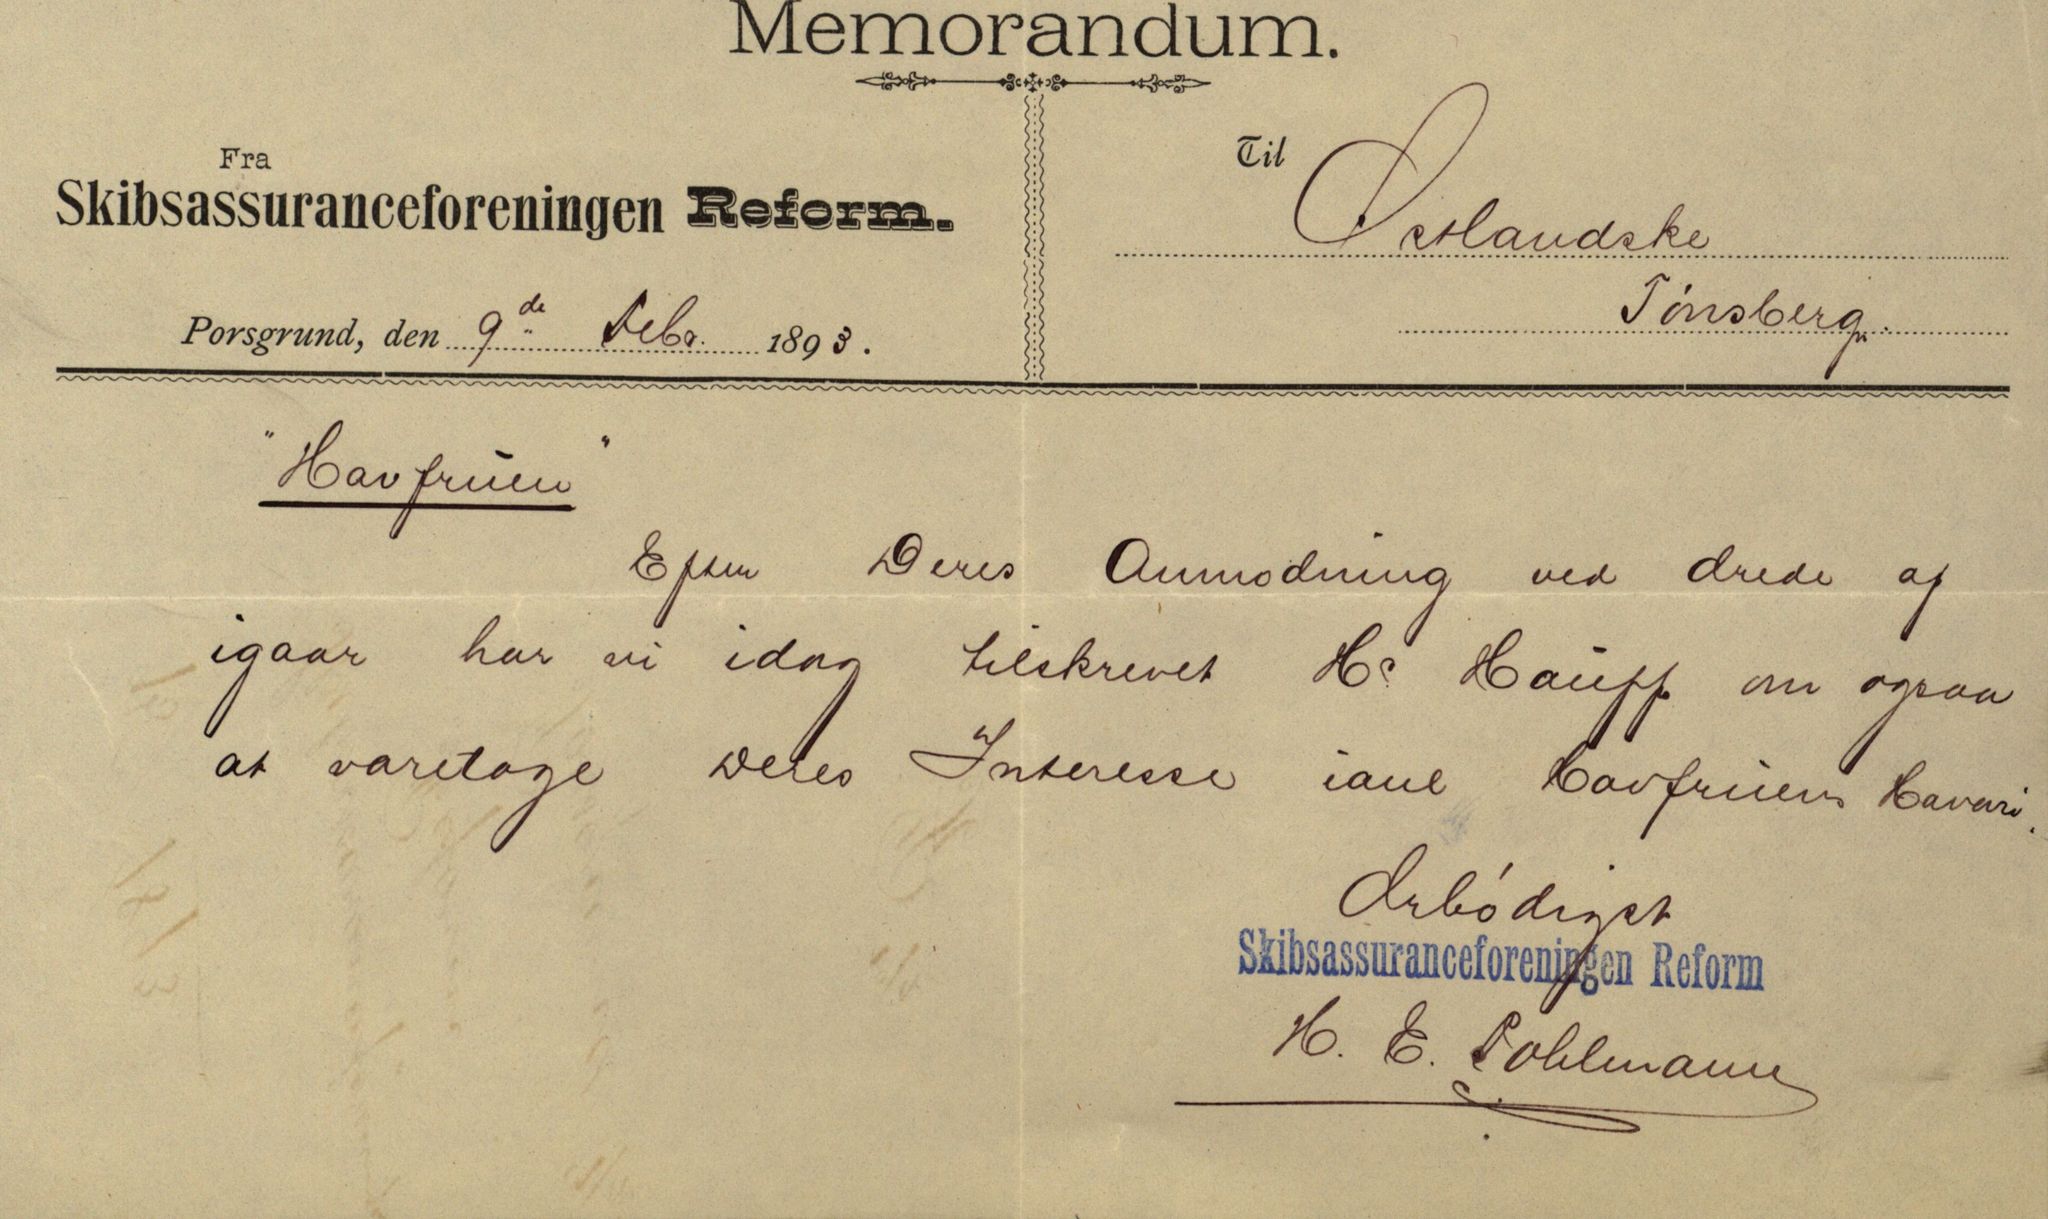 Memorandum.
Fra
Skibsassuranceforeningen Reform.
Porsgrund, den 9de Febr. 1893.
Til Østlandske
Tönsberg.
"Havfruen"
Efter Deres Anmodning ved drede af
igaar har vi idag tilskrevet Hr. Hauff om ogsaa
at varetage Deres Interesse ianl Havfruens Havari.
Ærbödigst
Skibsassuranceforeningen Reform
H. E. Pohlmann